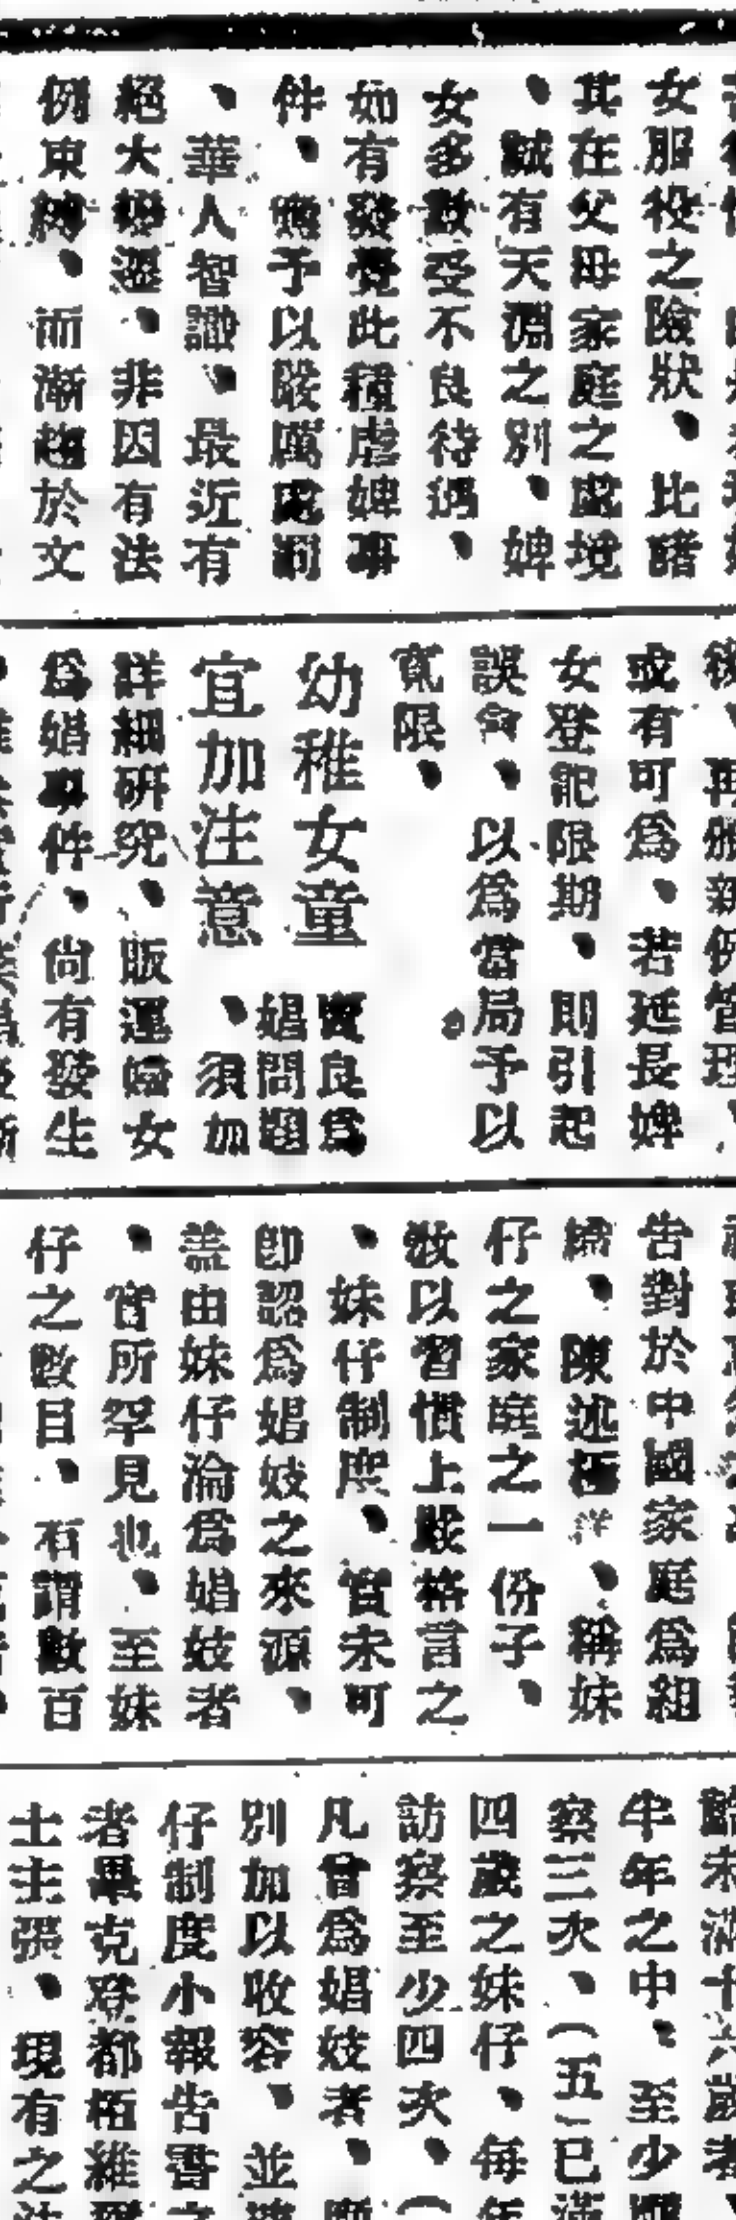 女服役之險狀、比諸
其在父母家庭之處境
、誠有天淵之別、婢
女多數受不良待遇、
如有發覺此種虐婢事
件、應予以嚴厲處罰
、華人智識、最近有
絕大變遷、非因有法
例束縛、而漸趨於文
或有可為、若延長婢
女登記限期、則引起
誤會、以為當局予以
寬限、
幼稚女童
宜加注意
賣良為
娼問題
、須加
詳細研究、販運婦女
為娼事件、尚有發生
告對於中國家庭為組
織、陳述極詳、稱妹
仔之家庭之一份子、
牧以習慣上嚴格言之
、妹仔制度、實未可
卽認為娼妓之來源、
盖由妹仔淪為娼妓者
、實所罕見也、至妹
仔之數目、有謂數百
半年之中、至少
察三次、(五)已滿
四歲之妹仔、每年
訪察至少四次、(
凡曾為娼妓者、
別加以收容、並
仔制度小報告書之
者畢克登都柘維
士主張、現有之法